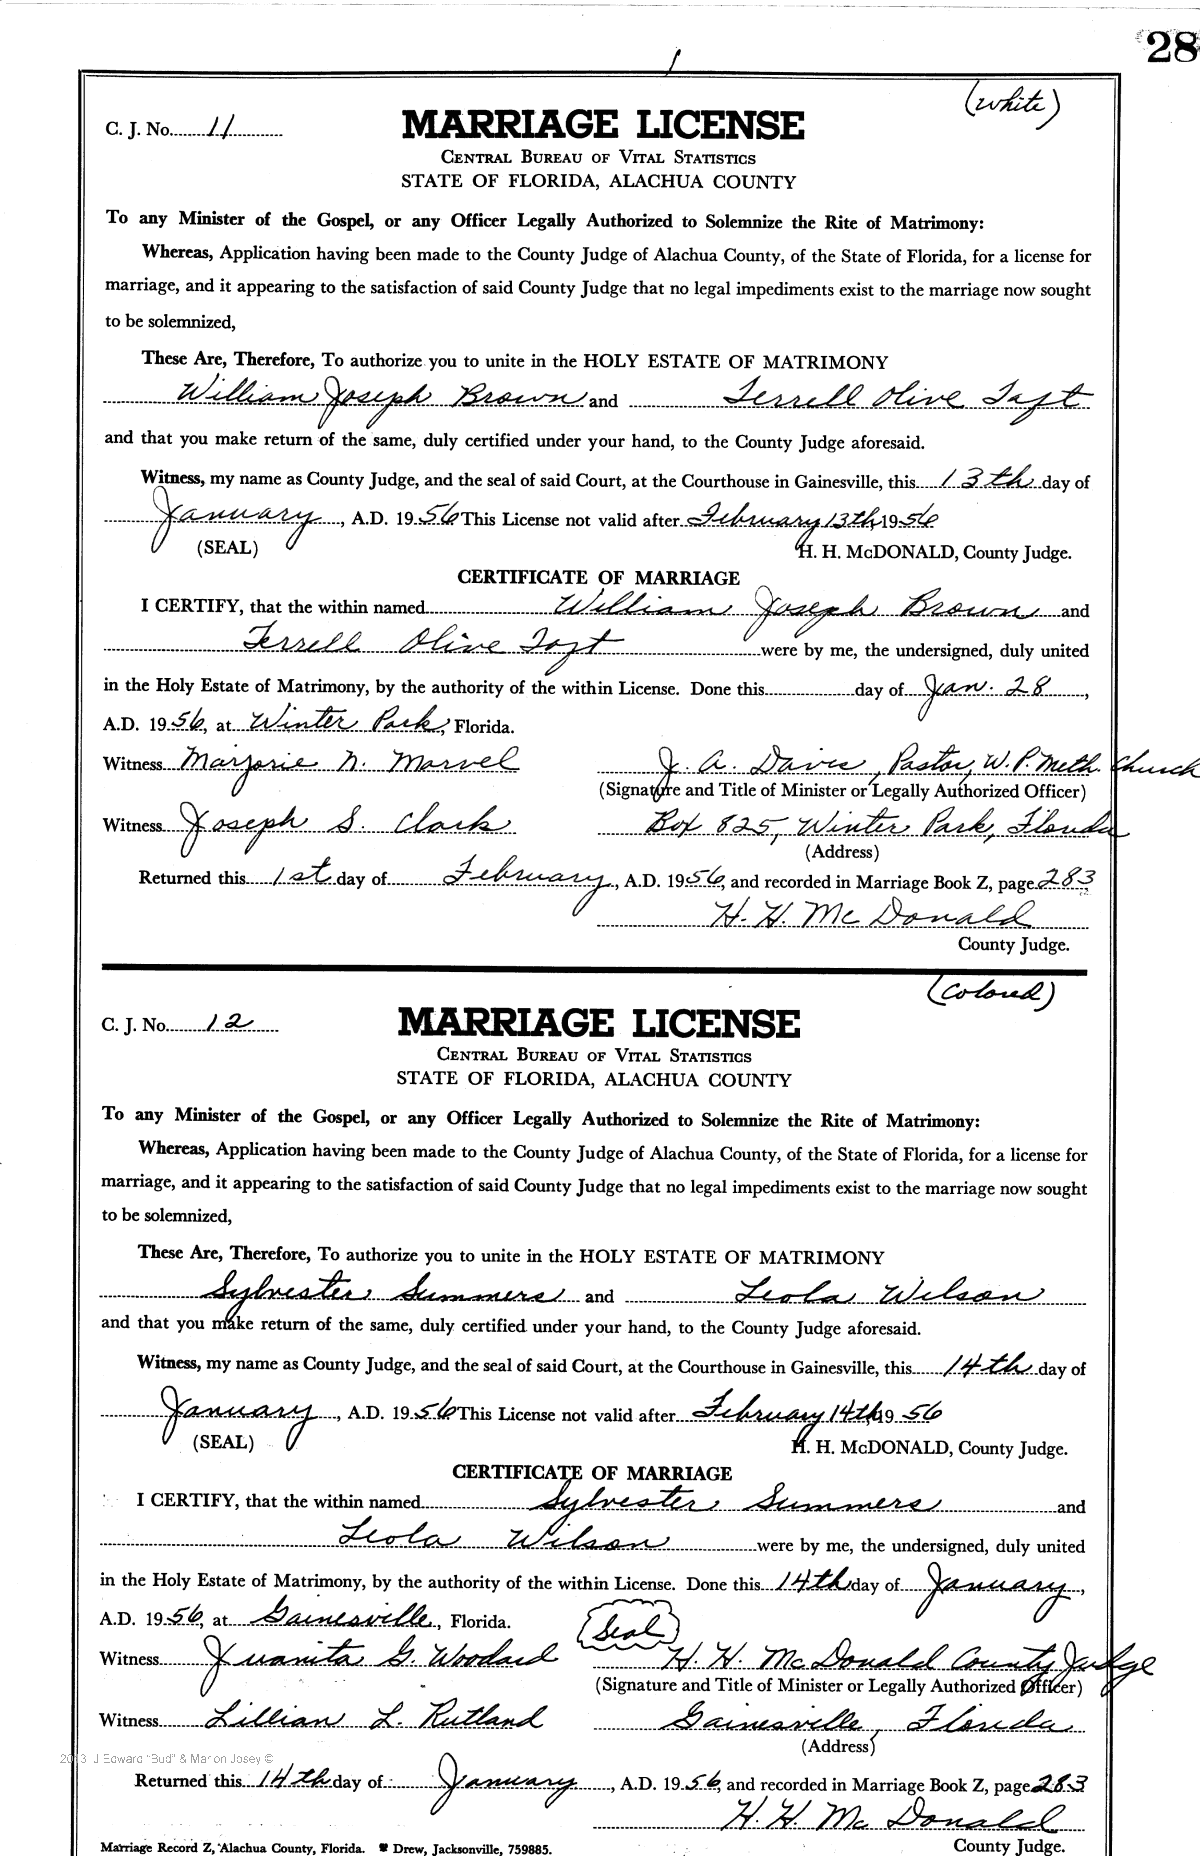 28
(White)
C. J. No. 11
MARRIAGE LICENSE
CENTRAL BUREAU OF VITAL STATISTICS
STATE OF FLORIDA, ALACHUA COUNTY
To any Minister of the Gospel, or any Officer Legally Authorized to Solemnize the Rite of Matrimony:
Whereas, Application having been made to the County Judge of Alachua County, of the State of Florida, for a license for
marriage, and it appearing to the satisfaction of said County Judge that no legal impediments exist to the marriage now sought
to be solemnized,
These Are, Therefore, To authorize you to unite in the HOLY ESTATE OF MATRIMONY
William Joseph Brown and Terrell Olive Taft
and that you make return of the same, duly certified under your hand, to the County Judge aforesaid.
Witness, my name as County Judge, and the seal of said Court, at the Courthouse in Gainesville, this 13th day of
January, A.D. 1956 This License not valid after February 13th, 1956
(SEAL) H. H. McDONALD, County Judge.
CERTIFICATE OF MARRIAGE
I CERTIFY, that the within named William Joseph Brown and
Terrell Olive Taft were by me, the undersigned, duly united
in the Holy Estate of Matrimony, by the authority of the within License. Done this day of Jan. 28,
A.D. 1956, at Winter Park, Florida.
Witness Marjorie N. Marvel J. A. Davis, Pastor, W. P. Meth. Church
(Signature and Title of Minister or Legally Authorized Officer)
Witness Joseph S. Clark Box 825, Winter Park, Florida
(Address)
Returned this 1st day of February, A.D. 1956, and recorded in Marriage Book Z, page 283
H. H. McDonald
County Judge.
(Colored)
C. J. No. 12
MARRIAGE LICENSE
CENTRAL BUREAU OF VITAL STATISTICS
STATE OF FLORIDA, ALACHUA COUNTY
To any Minister of the Gospel, or any Officer Legally Authorized to Solemnize the Rite of Matrimony:
Whereas, Application having been made to the County Judge of Alachua County, of the State of Florida, for a license for
marriage, and it appearing to the satisfaction of said County Judge that no legal impediments exist to the marriage now sought
to be solemnized,
These Are, Therefore, To authorize you to unite in the HOLY ESTATE OF MATRIMONY
Sylvester Summers and Leola Wilson
and that you make return of the same, duly certified under your hand, to the County Judge aforesaid.
Witness, my name as County Judge, and the seal of said Court, at the Courthouse in Gainesville, this 14th day of
January, A.D. 1956 This License not valid after February 14th, 1956
(SEAL) H. H. McDONALD, County Judge.
CERTIFICATE OF MARRIAGE
I CERTIFY, that the within named Sylvester Summers and
Leola Wilson were by me, the undersigned, duly united
in the Holy Estate of Matrimony, by the authority of the within License. Done this 14th day of January,
A.D. 1956, at Gainesville, Florida. Seal
Witness Juanita G. Woodard H. H. McDonald County Judge
(Signature and Title of Minister or Legally Authorized Officer)
Witness Lillian L. Rutland Gainesville, Florida
(Address)
2013 J Edward "Bud" & Marion Josey ©
Returned this 14th day of January, A.D. 1956, and recorded in Marriage Book Z, page 283
H. H. McDonald
Marriage Record Z, Alachua County, Florida. Drew, Jacksonville, 759885. County Judge.